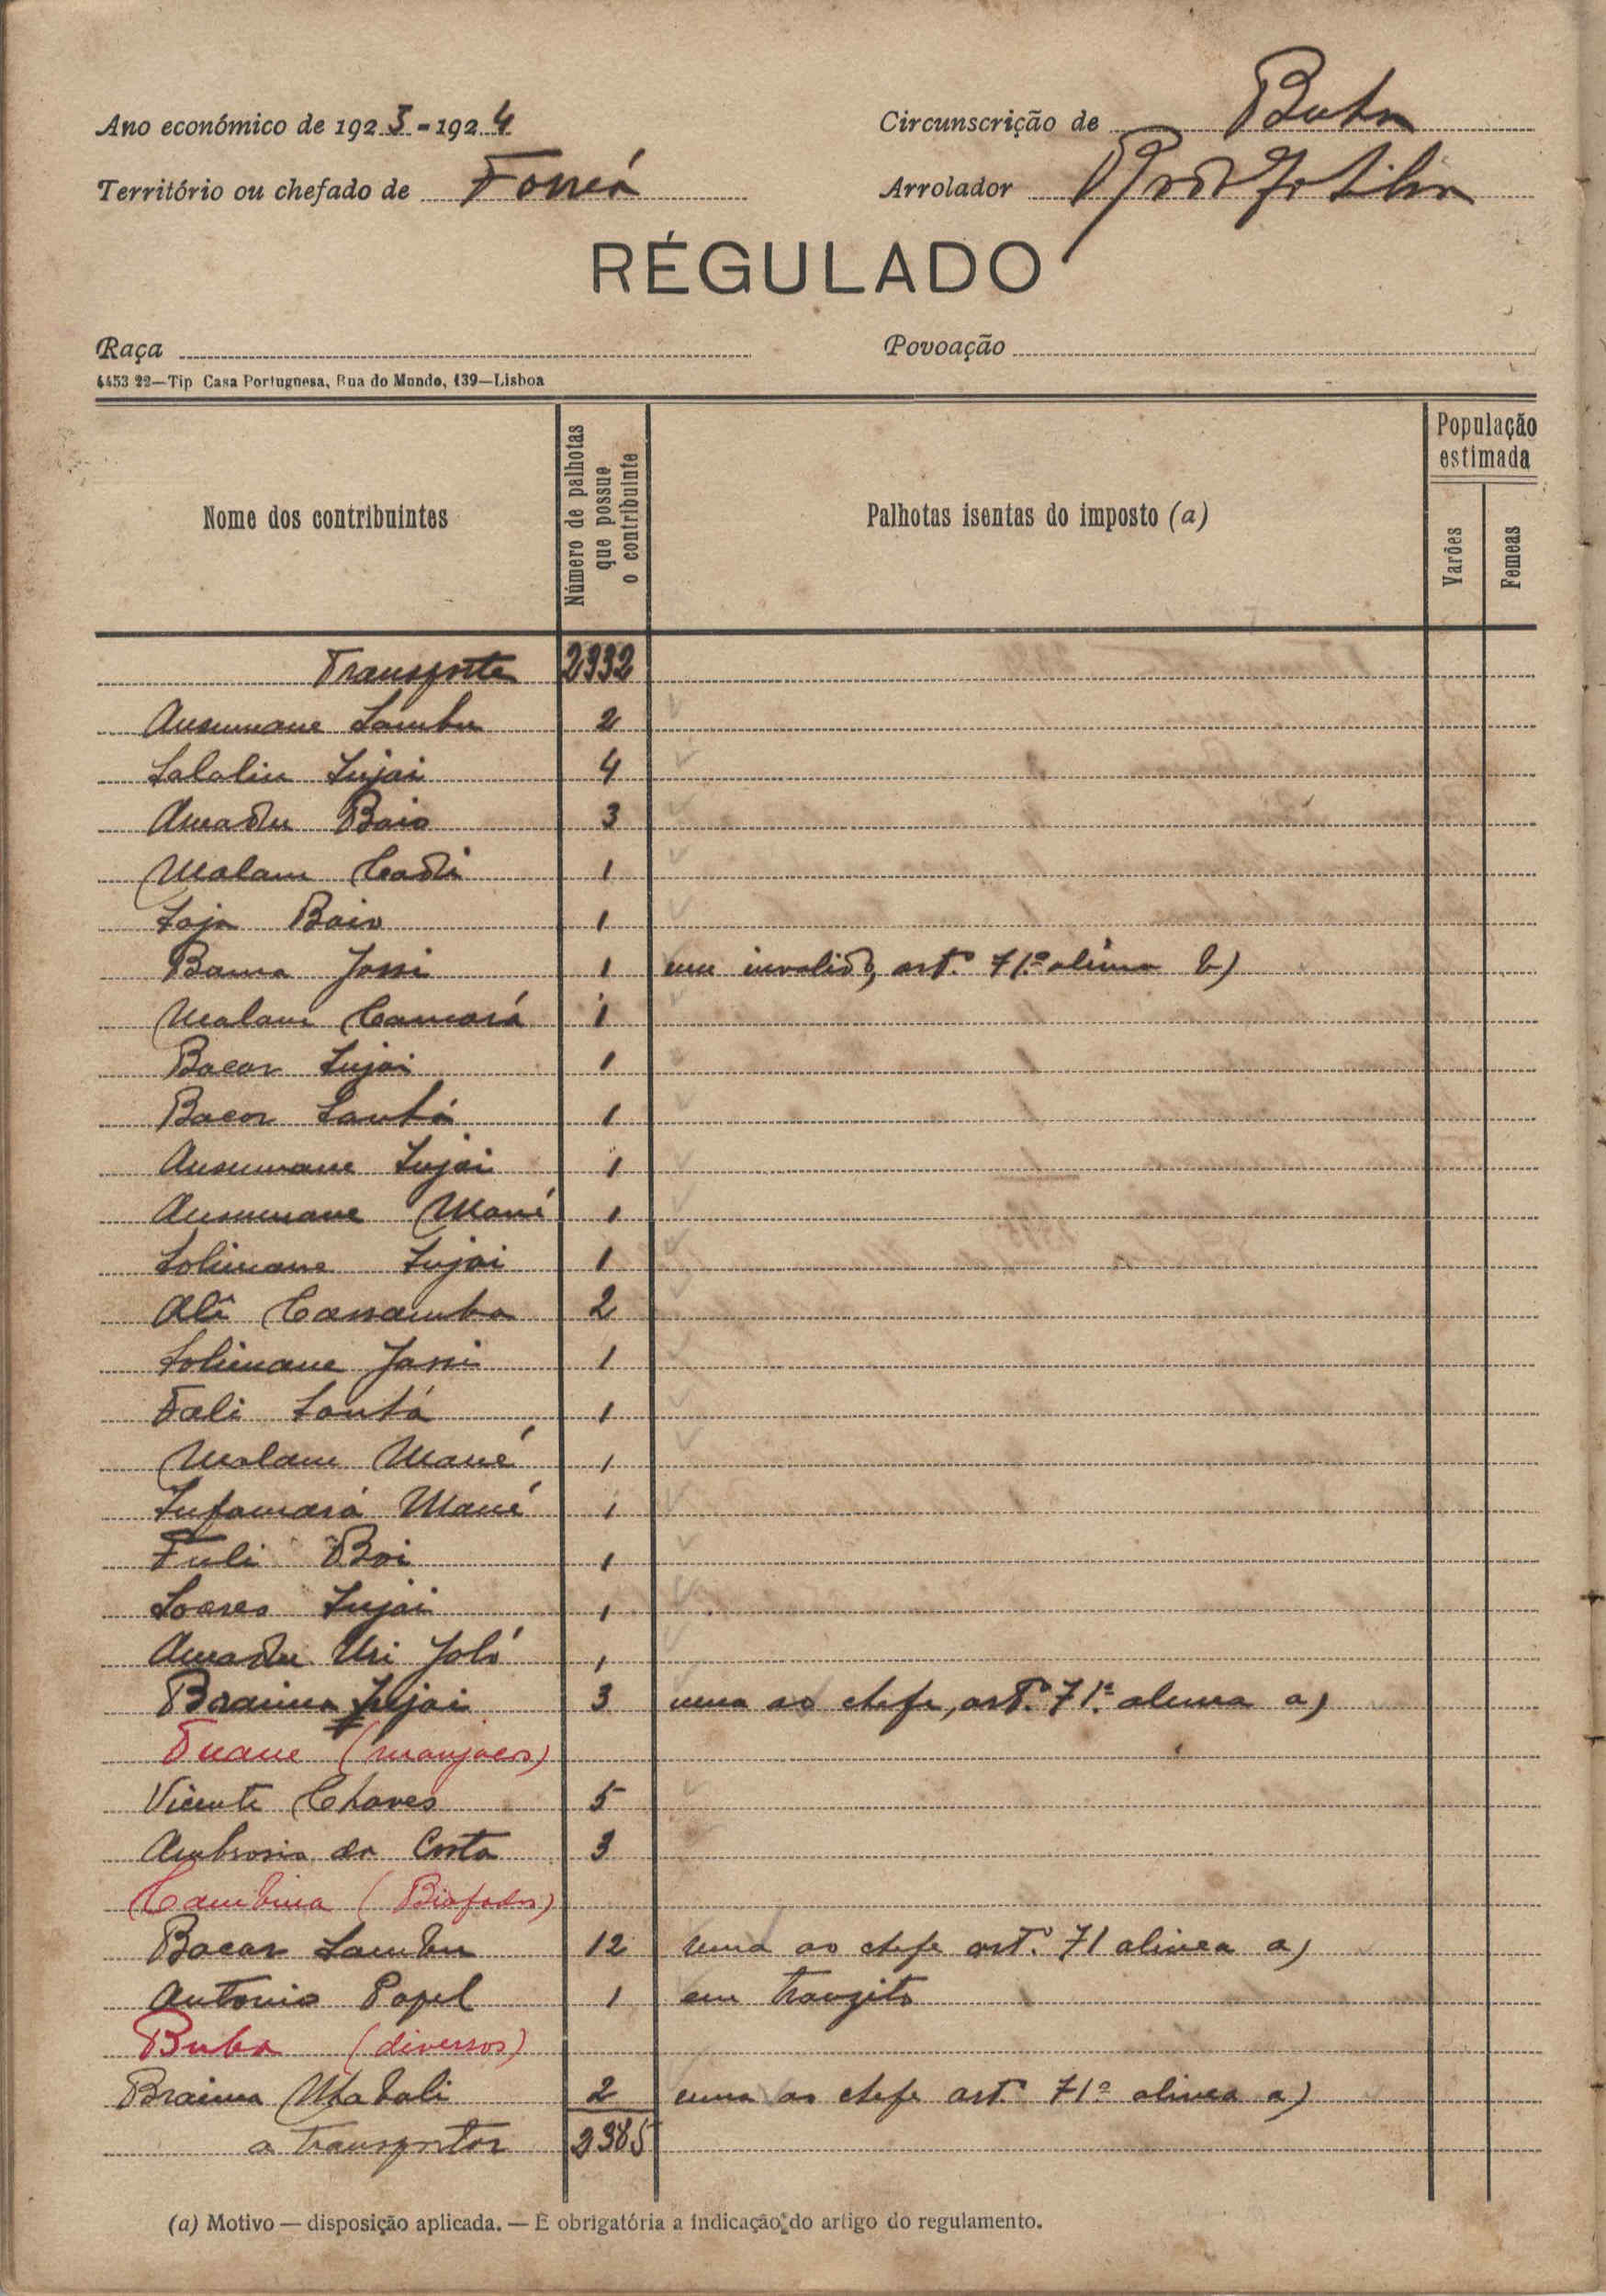 Ano económico de 1923-1924
Circunscrição de Buba
Território ou chefado de Forriá
Arrolador
RÉGULADO
Raça
Povoação
4453 22—Tip Casa Portuguesa, Rua do Mundo, 139—Lisboa
Nome dos contribuintes
Número de palhotas que possue o contribuinte
Palhotas isentas do imposto (a)
População estimada
Varões
Femeas
Transporte 2332
Ansumane Sambu 2
Salaliu Injai 4
Amadu Baio 3
Malam Cadi 1
Baio 1
Bama Jassi 1 um invalido, art.º 71.º alinea b)
Malam Camará 1
Bacar Injai 1
Bacar Santá 1
Ansumane Injai 1
Ansumane Mané 1
Solimane Injai 1
Ali Cassamba 2
Solimane Jassi 1
Fali Santá 1
Malam Mané 1
Infamará Mané 1
Fuli Boi 1
Soares Injai 1
Amadu Uri Jaló 1
Braima Injai 3 uma ao chefe, art.º 71.º alinea a)
Tuane (manjacos)
Vicente Chaves 5
Ambrosio da Costa 3
Cambina (Biafadas)
Bacar Sambu 12 uma ao chefe art.º 71 alinea a)
Antonio Papel 1 em tranzito
Buba (diversos)
Braima 2 uma ao chefe art.º 71º alinea a)
a transportar 2385
(a) Motivo — disposição aplicada. — É obrigatória a indicação do artigo do regulamento.